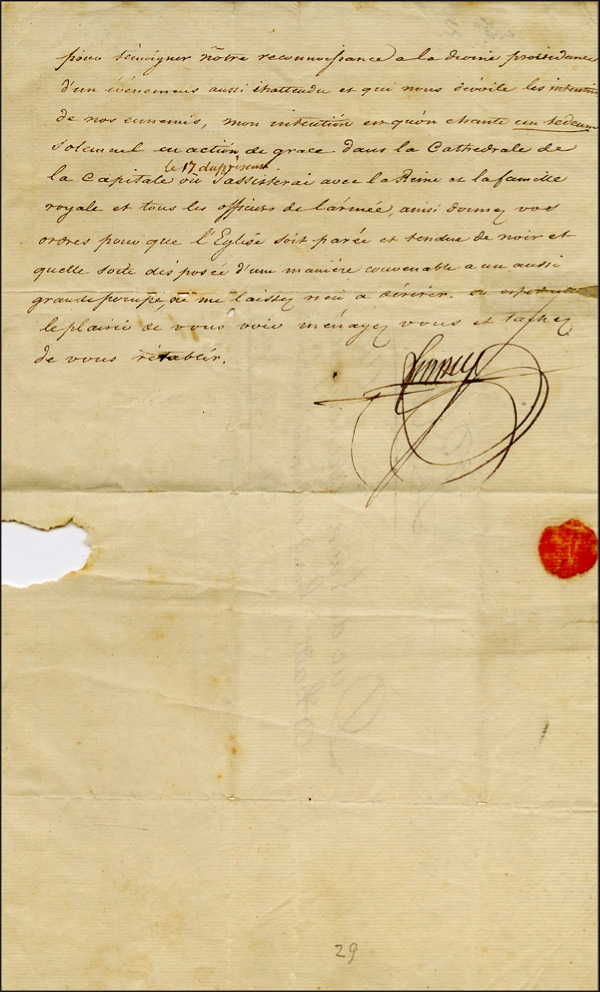 pour témoigner nôtre reconnoissance a la divine providance
d'un événement aussi inattendu et qui nous dévoile les intentions
de nos ennemis, mon intention est qu'on chante un tedeum
Solemnel en action de grace dans la Cathedrale de
le 17 du présent
la Capitale ou J'assisterai avec la Reine et la famille
royale et tous les officiers de l'armée, ainsi donnez vos
ordres pour que l'Eglise soit parée et tendue de noir et
quelle soite disposée d'une maniére convenable a un aussi
grande pompe, ne me laissez rien a désirer. en esperant
le plaisir de vous voir ménagez vous et tachez
de vous rétablir.
henry
29